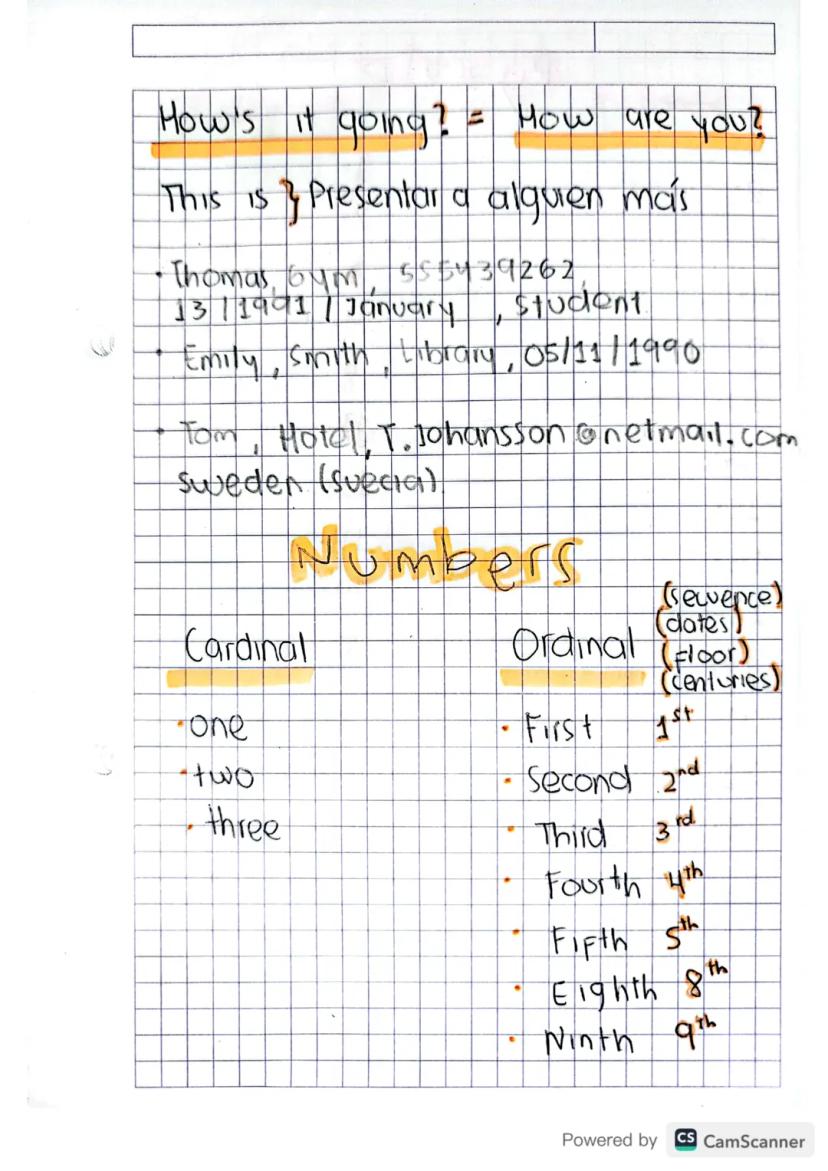 How's it going? = How are you?
This is } Presentar a alguien más
· Thomas, Gym, 555439262,
13 / 1991 / January , student
· Emily, Smith, Library, 05/11/1990
· Tom, Hotel, T.Johansson@netmail.com
sweden (suecia)
Numbers
Cardinal
· one
· two
· three
Ordinal
(secuence)
(dates)
(floor)
(centuries)
· First 1st
· Second 2nd
· Third 3rd
· Fourth 4th
· Fifth 5th
· Eighth 8th
· Ninth 9th
Powered by CS CamScanner